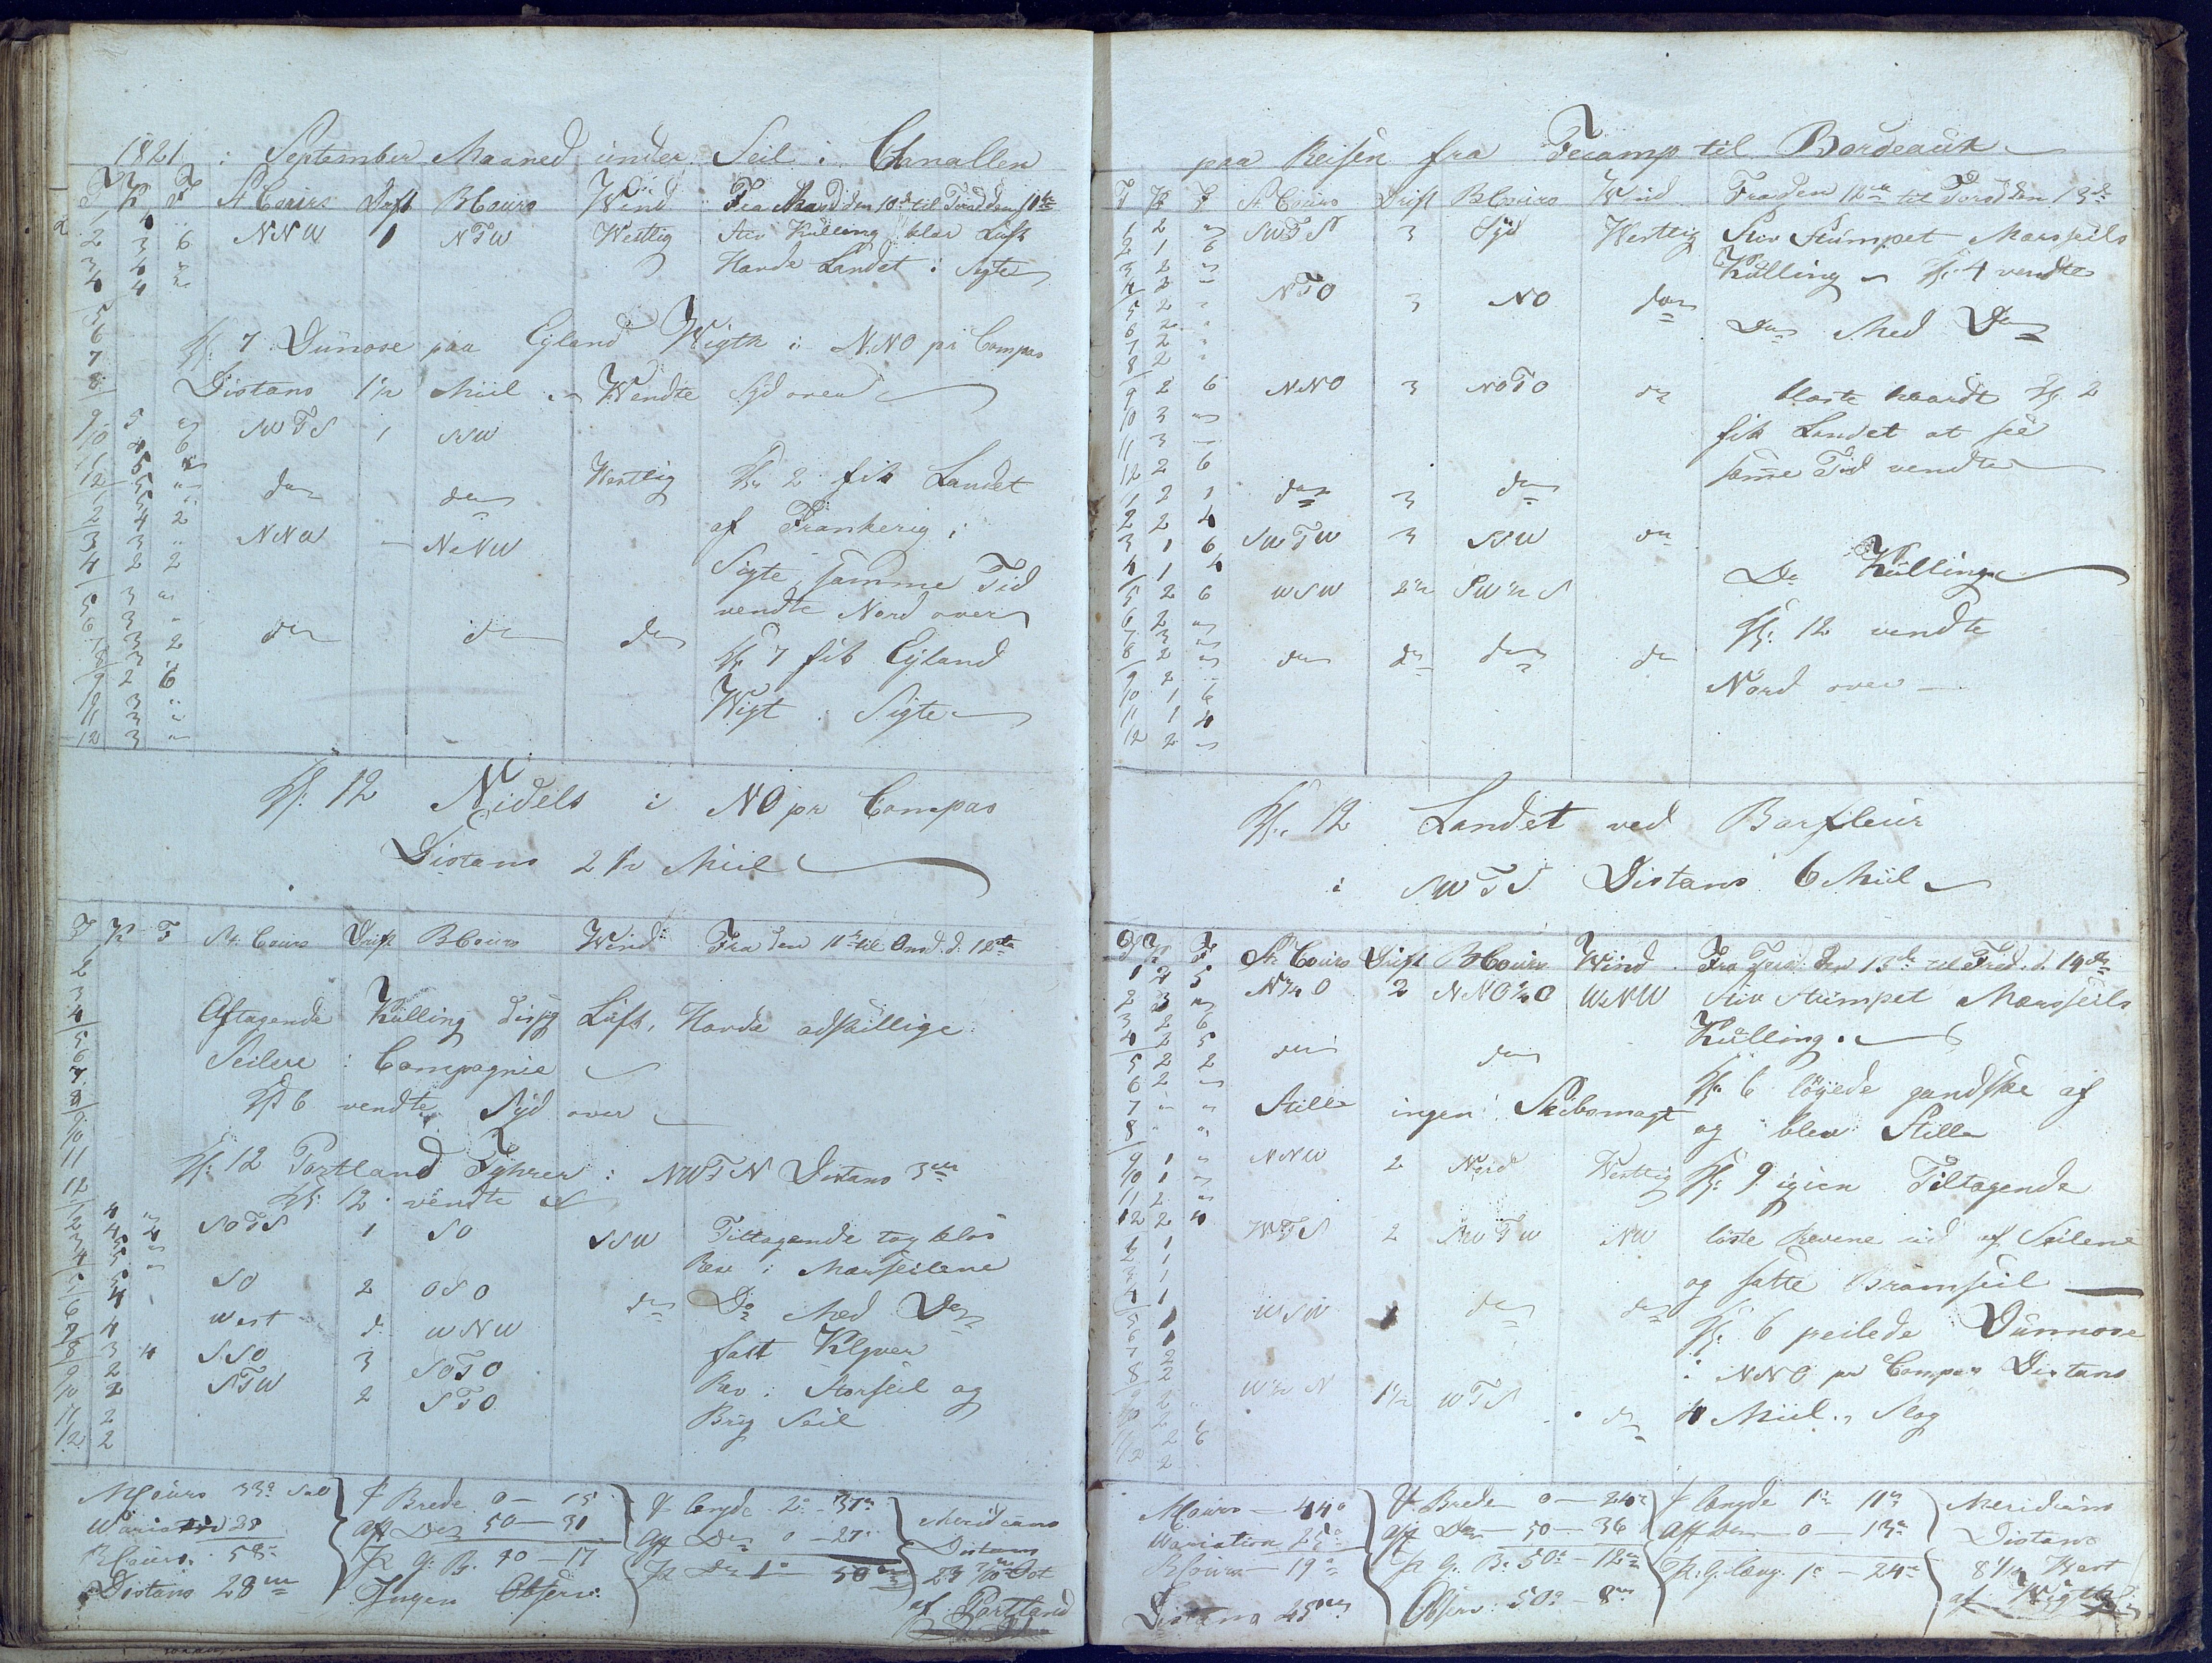 1821 i September Maaned under Seil i Chanallen
T K F St Cours Drift B Cours Wind Fra Mand den 10de til Tirsd den 11te
1 4 " NNW 1 NTW Westlig Stiv Kulling klar Luft
2 3 6 Havde Landet i Sigte
3 4 "
4 4 "
5
6
7 Kl: 7 Dunose paa Eyland Wigth i N.NO pr Compas
8 Distans 1 1/2 Miil Wendte Syd over
9 5 " SWTS 1 SSW
10 4 6
11 5 "
12 5 " do do Westlig Kl 2 fik Landet
1 5 " af Frankerig i
2 4 2 NNW NNW Sigte, samme Tid
3 3 " vendte Nord over
4 2 2
5 3 "
6 3 " do do do Kl 7 fik Eyland
7 3 2 Wigt i Sigte
8 3
9 2 6
10 3 "
11 3 "
12 3 "
Kl: 12 Nidels i NO pr Compas
Distans 2 1/2 Miil
T K F St. Cours Drift B Cours Wind Fra den 11te til Onsd. d. 12te
2
3
4 Aftagende Kulling disig Luft, Havde adskillige
5
6 Seilere i Compagnie
7
8 Kl 6 vendte Syd over
9
10
11 Kl: 12 Portland Fyhrer i NWTN Distans 3m
12 Kl: 12 vendte
1 4 " SOTS 1 SO SSW Tiltagende tog klos
2 4 4 Rev i Marseilene
3 5 "
4 5 "
5 5 SO 2 OSO do Do Med Do
6 4 West d. WNW fast Klyver
7 4
8 3 4 SSO 3 SOTO Rev i Storseil og
9 2 STW 2 STO Brig Seil
10 2
11 2
12 2
M Cours 33° S
Variation 25
B Cours 58°
Distans 28m
f Brede 0 — 15
aff Do 50 — 31
Ingen Observ:
f længde 2° 37m
aff Do 0 — 27
Meridians
Distans
23 7/10 Ost
af Portland
paa Reisen fra Fecamp til Bordeaux
T K F St Cours Drift B Cours Wind Fra den 12te til Torsd den 13de
1 2 " SWTS 3 Syd Westlig Stiv Stumpet Marsseils
2 1 6 Kulling Kl: 4 vendte
3 2 "
4 2 " NTO 3 NO do
5 2 " Do Med Do
6 2 "
7 2 "
8 2 "
9 2 6 NNO 3 NOTO do blaste haardt Kl 2
10 3 " fik Landet at see
11 3 "
12 2 6 samme Tid vendte
1 2 1 do 3 do
2 2 4
3 1 6 SWTW 3 SSW do
4 1 4 Do Kulling
5 2 6 WSW 2 1/2 SW 1/2 S
6 2 " Kl: 12 vendte
7 3 "
8 2 " do do do do
9 2 Nord over
10 1 6
11 1 4
12 2 "
Kl. 12 Landet ved Barfleur
i SWTS Distans 6 Miil
T K F St Cours Drift B Cours Wind Fra Torsd den 13de til Fred. d. 14de
1 2 5 N 1/4 O 2 NNO 1/4 O WNW Stiv Stumpet Marsseils
2 3 " Kulling.
3 2 6
4 2 5 do do
5 2 2 Kl: 6 löyede gandske af
6 2 "
7 " " Stille ingen Skibsmagt og blev Stille
8 " "
9 1 " NNW 2 Nord Westlig Kl: 9 igien Tiltagende
10 1 "
11 2 "
12 2 4 WTS 2 SWTW NW löste Revene ud af Seilene
1 1
2 1 og satte Bramseil
3 1
4 1 WSW do do Kl: 6 peilede Dunnose
5 1
6 1 i NNO pr Compas Distans
7 2
8 2 W 1/2 N 1 1/2 WTS do 4 Miil. Slog
9 2
10 2
11 2 6
12 2
M Cours — 44°
Variation 25°
B Cours — 19°
Distans 25m
f Brede 0 — 24m
aff Do — 50 — 36
Fr G: B: 50° — 12m
Observ: 50° — 8m
f længde 1° 11m
aff Do — 0 — 13m
Fr: G. læng. 1° — 24m
Meridians
Distans
8 1/2 West
af Wigth